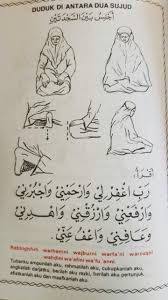 DUDUK DI ANTARA DUA SUJUD
أَجْلِسْ بَيْنَ السَّجْدَتَيْنِ
إِقْرَأْ :
رَبِّ اغْفِرْلِيْ وَارْحَمْنِيْ وَاجْبُرْنِيْ
وَارْفَعْنِيْ وَارْزُقْنِيْ وَاهْدِنِيْ
وَعَافِنِيْ وَاعْفُ عَنِّيْ
Rabbighfirlii warhamnii wajburnii warfa'nii warzuqnii
wahdinii wa'aafinii wa'fu 'annii.
Tuhanku ampunilah aku, rahmatilah aku, cukupkanlah aku,
angkatlah darjatku, berilah aku rezki, berilah aku petunjuk,
afiatkanlah aku dan maafkanlah aku